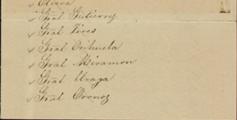 Gral Gutierrez
Gral Pérez
Gral Orihuela
Gral Miramon
Gral Uraga
Gral Oronoz